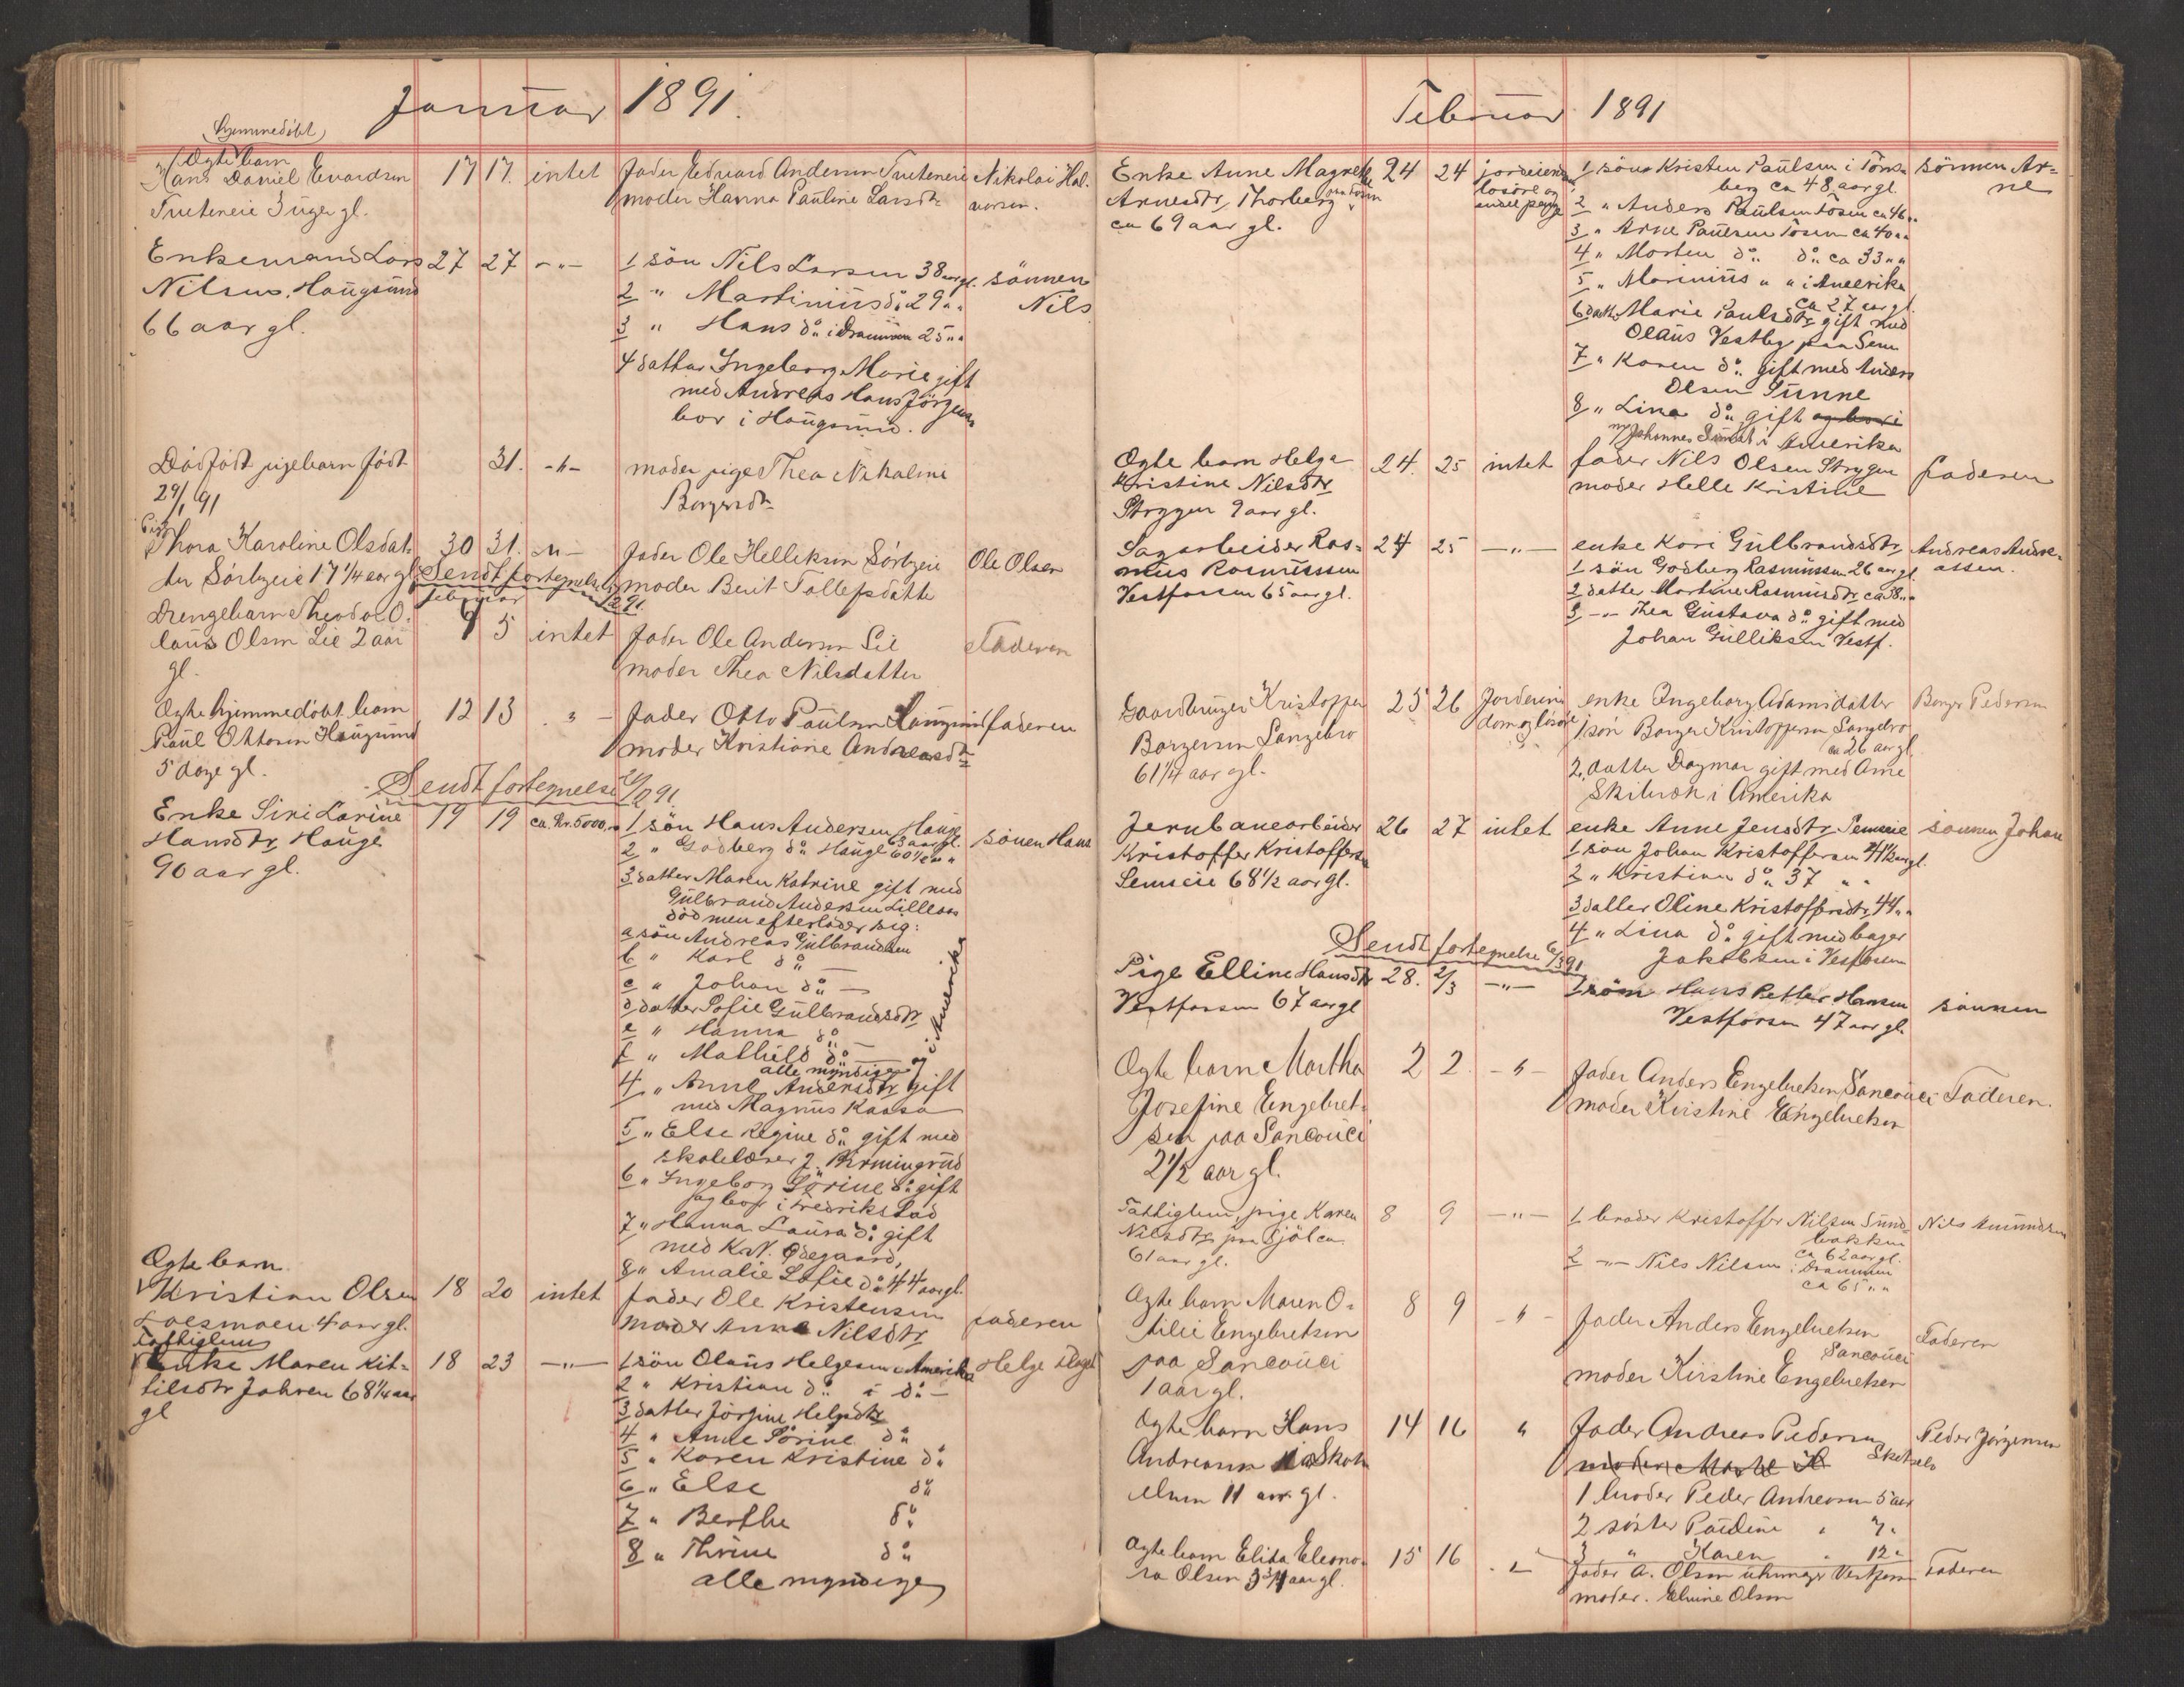 Januar 1891.
hjemmedöbt
Ægte barn
Hans Daniel Evardsen 17 17. intet Fader Edvard Andersen Nikolai Hal-
3 uger gl. moder Hanna Pauline Larsdtr vorsen.
Enkemand Lars 27 27 -"- 1 sön Nils Larsen 38 aar gl. sönnen
Nilsen, Haugsund 2 " Martinius do 29 " " Nils
66 aar gl. 3 " Hans do i Drammen 25 " "
4 datter Ingeborg Marie gift
med Andreas Hans Jörgensen
bor i Haugsund.
Dödfödt pigebarn födt 31. -"- moder pige Thea Nikoline
29/1 91 Borgersdtr
Pige
Thora Karoline Olsdat- 30 31. -"- Fader Ole Helleksen Sörbyeie Ole Olsen
ter Sörbyeie 17 1/4 aar gl. Sendt fortegnelse moder Berit Tollefsdatter
februar
Drengebarn Theodor O- 4 5 intet Fader Ole Andersen Lie Faderen
laus Olsen Lie 2 aar moder Thea Nilsdatter
gl.
Ægte hjemmedöbt barn 12 13 " - Fader Otto Paulsen Haugsund faderen
Paul Ottosen Haugsund moder Kristiane Andreasdtr
5 dage gl.
Sendt fortegnelse 91.
Enke Siri Larine 19 19 ca. Kr. 5000,00 1 sön Hans Andersen Hauge 63 aar gl. sönen Hans
Hansdtr Hauge 2 " Godberg do Hauge 60 1/2 " "
90 aar gl. 3 datter Maren Katrine gift med
Gulbrand Andersen Lilleaas
död men efterlader sig:
a sön Andreas Gulbrandsen
b " Karl do -
c " Johan do -
d datter Sofie Gulbrandsdtr
e " Hanna do
f " Mathild do
alle myndige og i Amerika
4 " Anne Andersdtr gift
med Magnus Kaasa
5 " Else Regine do gift med
skolelærer J. Birmingrud
6 " Ingeborg Sörine do gift
og bor i Fredrikstad
7 " Hanna Laura do gift
med K. N. Ødegaard,
8 " Amalie Sofie do 44 aar gl.
Ægte barn
Kristian Olsen 18 20 intet fader Ole Kristensen faderen
Loesmoen 4 aar gl. moder Anne Nilsdtr
Fattiglem
Enke Maren Kit- 18 23 -"- 1 sön Olaus Helgesen i Amerika Helge
tilsdtr Jahren 68 1/4 aar 2 " Kristian do i do -
gl 3 datter Jörgine Helgsdtr
4 " Anne Sörine do
5 " Karen Kristine do
6 " Else do
7 " Berthe do
8 " Thrine do
alle myndige
Februar 1891
Enke Anne Magrethe 24 24 jordeiendom 1 sön Kristen Paulsen i Töns- sönnen Ar-
Arnesdtr, Thorberg paa Fosen lösöre og berg ca 48 aar gl. ne
ca 69 aar gl. endel penge 2 " Anders Paulsen Fosen ca 46 " "
3 " Arne Paulsen Fosen ca 40 " "
4 " Morten do do ca 33 " "
5 " Marinius " " i Amerika
ca 27 aar gl.
6 datt. Marie Paulsdtr gift med
Olaus Vestby paa Sem
7 " Karen do gift med Anders
Olsen Sunne
8 " Lina do gift og bor i
m/ Johannes i Amerika
Ægte barn Helga 24. 25 intet fader Nils Olsen Strygen faderen
Kristine Nilsdtr moder Helle Kristine
Strygen 9 aar gl.
Sagarbeider Ras- 24 25 -"- enke Kari Gulbrandsdtr Andreas Andre-
mus Rasmussen 1 sön Godberg Rasmussen 26 aar gl. assen.
Vestfossen 65 aar gl. 2 datter Martine Rasmusdtr ca 38 " "
3 -"- Thea Gustava do gift med
Johan Gulliksen Vestf.
Gaardbruger Kristoffer 25 26 Jordeien enke Ingeborg Adamsdatter Borger Pedersen
Borgersen Langebro dom og lösöre 1 sön Borger Kristoffersen Langebro
61 1/4 aar gl. ca 26 aar gl.
2. datter Dagmar gift med Arne
i Amerika
Jernbanearbeider 26 27 intet enke Anne Jensdtr Semseie sönnen Johan
Kristoffer Kristoffersen 1 sön Johan Kristoffersen 41 1/2 aar gl.
Semseie 68 1/2 aar gl. 2 " Kristian do 37 " "
3 datter Oline Kristoffersdtr 44 " "
4 " Lina do gift med bager
Jakobsen i Vestfossen
Sendt fortegnelse 6/3 91
Pige Elline Hansdtr 28. 2/3 -"- 1 sön Hans Petter Hansen sönnen
Vestfossen 67 aar gl Vestfossen 47 aar gl.
Ægte barn Martha 2 2. -"- Fader Anders Engebretsen Sancouci Faderen.
Josefine Engebret- moder Kirstine Engebretsen
sen paa Sancouci
2 1/2 aar gl.
Fattiglem, pige Karen 8 9 -"- 1 broder Kristoffer Nilsen Sund- Nils Amundsen
Nilsdtr paa bakken
61 aar gl. ca 62 aar gl.
2 -"- Nils Nilsen i Drammen
ca 65 " "
Ægte barn Maren O- 8 9 -"- Fader Anders Engebretsen Faderen
tilie Engebretsen Sancouci
paa Sancouci moder Kirstine Engebretsen
1 aar gl.
Ægte barn Hans 14 16 " Fader Andreas Pedersen Peder Jörgensen
Andreasen
11 aar gl. 1 broder Peder Andreasen 5 aar
2 söster Pauline " 7 "
3 " Karen " 12 "
Ægte barn Elida Eleono- 15 16 -"- Fader A. Olsen uhrmager Vestfossen Faderen
ra Olsen 3 3/4 aar gl. moder. Elmine Olsen